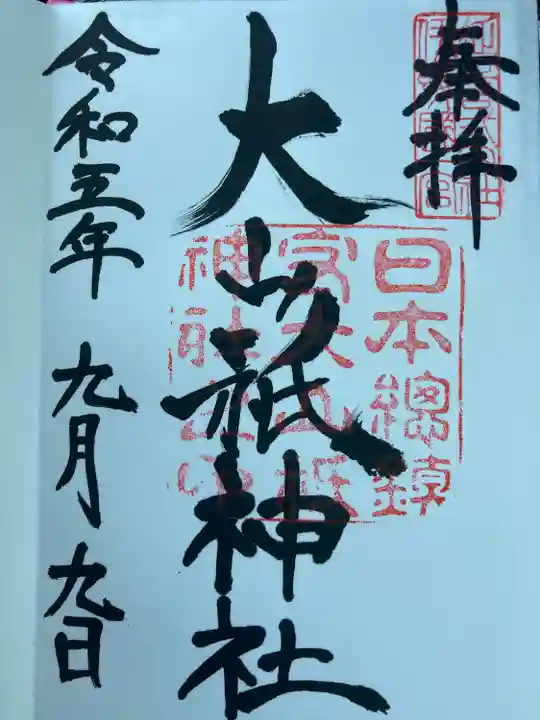 奉拝
日本總鎮
大山祇神社
令和五年 九月 九日